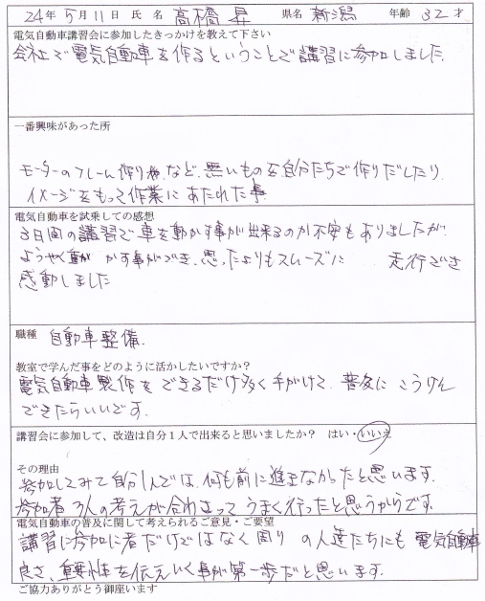 24年 5月 11日 氏名 高橋 昇 県名 新潟 年齢 32才
電気自動車講習会に参加したきっかけを教えて下さい
会社で電気自動車を作るということで講習に参加しました。
一番興味があった所
モーターのフレーム作り等など、無いものを自分たちで作りだしたり、
イメージをもって作業にあたれた事
電気自動車を試乗しての感想
3日間の講習で車を動かす事が出来るのか不安もありましたが、
ようやく動 かす事ができ、思ったよりもスムーズに 走行でき
感動しました
職種 自動車整備。
教室で学んだ事をどのように活かしたいですか?
電気自動車製作をできるだけ多く手がけて、普及にこうけん
できたらいいです。
講習会に参加して、改造は自分1人で出来ると思いましたか? はい・いいえ
その理由
参加してみて自分1人では、何も前に進まなかったと思います。
参加者3人の考えが合わさって うまく行ったと思うからです。
電気自動車の普及に関して考えられるご意見・ご要望
講習に参加に者だけではなく周りの人達たちにも 電気自動車
良さ、重要性を伝えいく事が第一歩だと思います。
ご協力ありがとう御座います